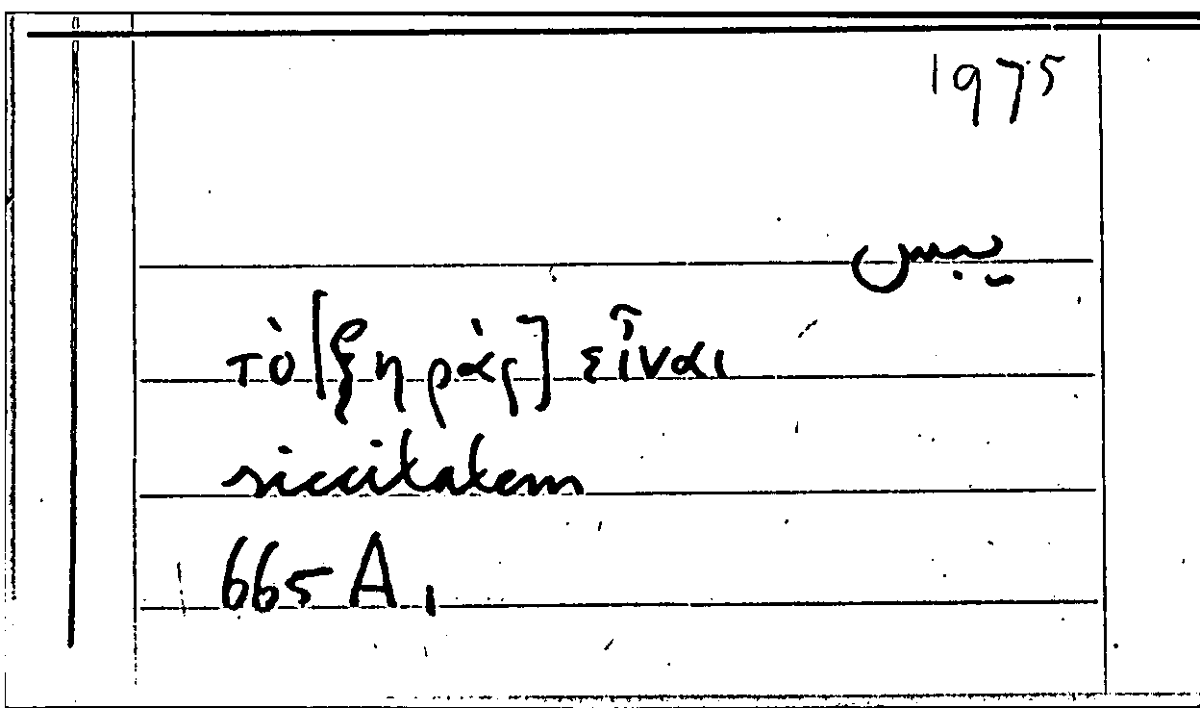 1975
يبس
τὸ [ξηρὰς] εἶναι
siccitatem
665 A 1